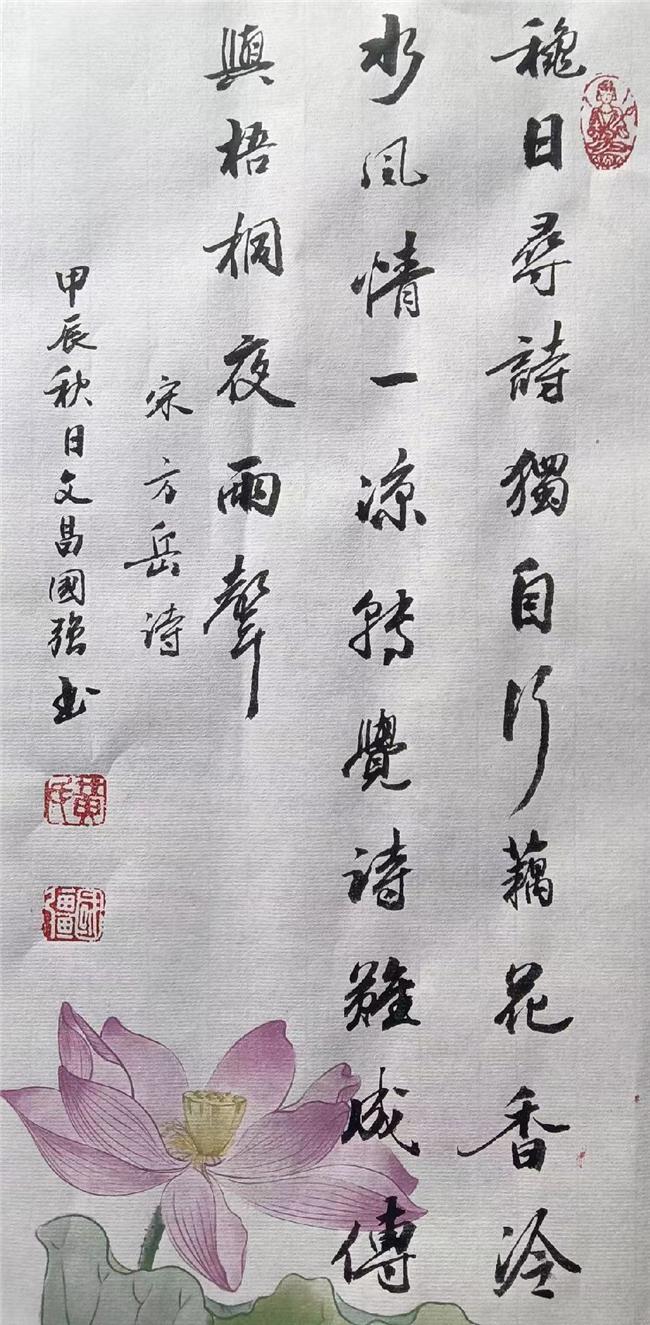 穐日尋詩獨自行藕花香冷
水風情一涼轉覺詩難成傳
與梧桐夜雨聲
宋方岳詩
甲辰秋日文昌國強書
黃氏